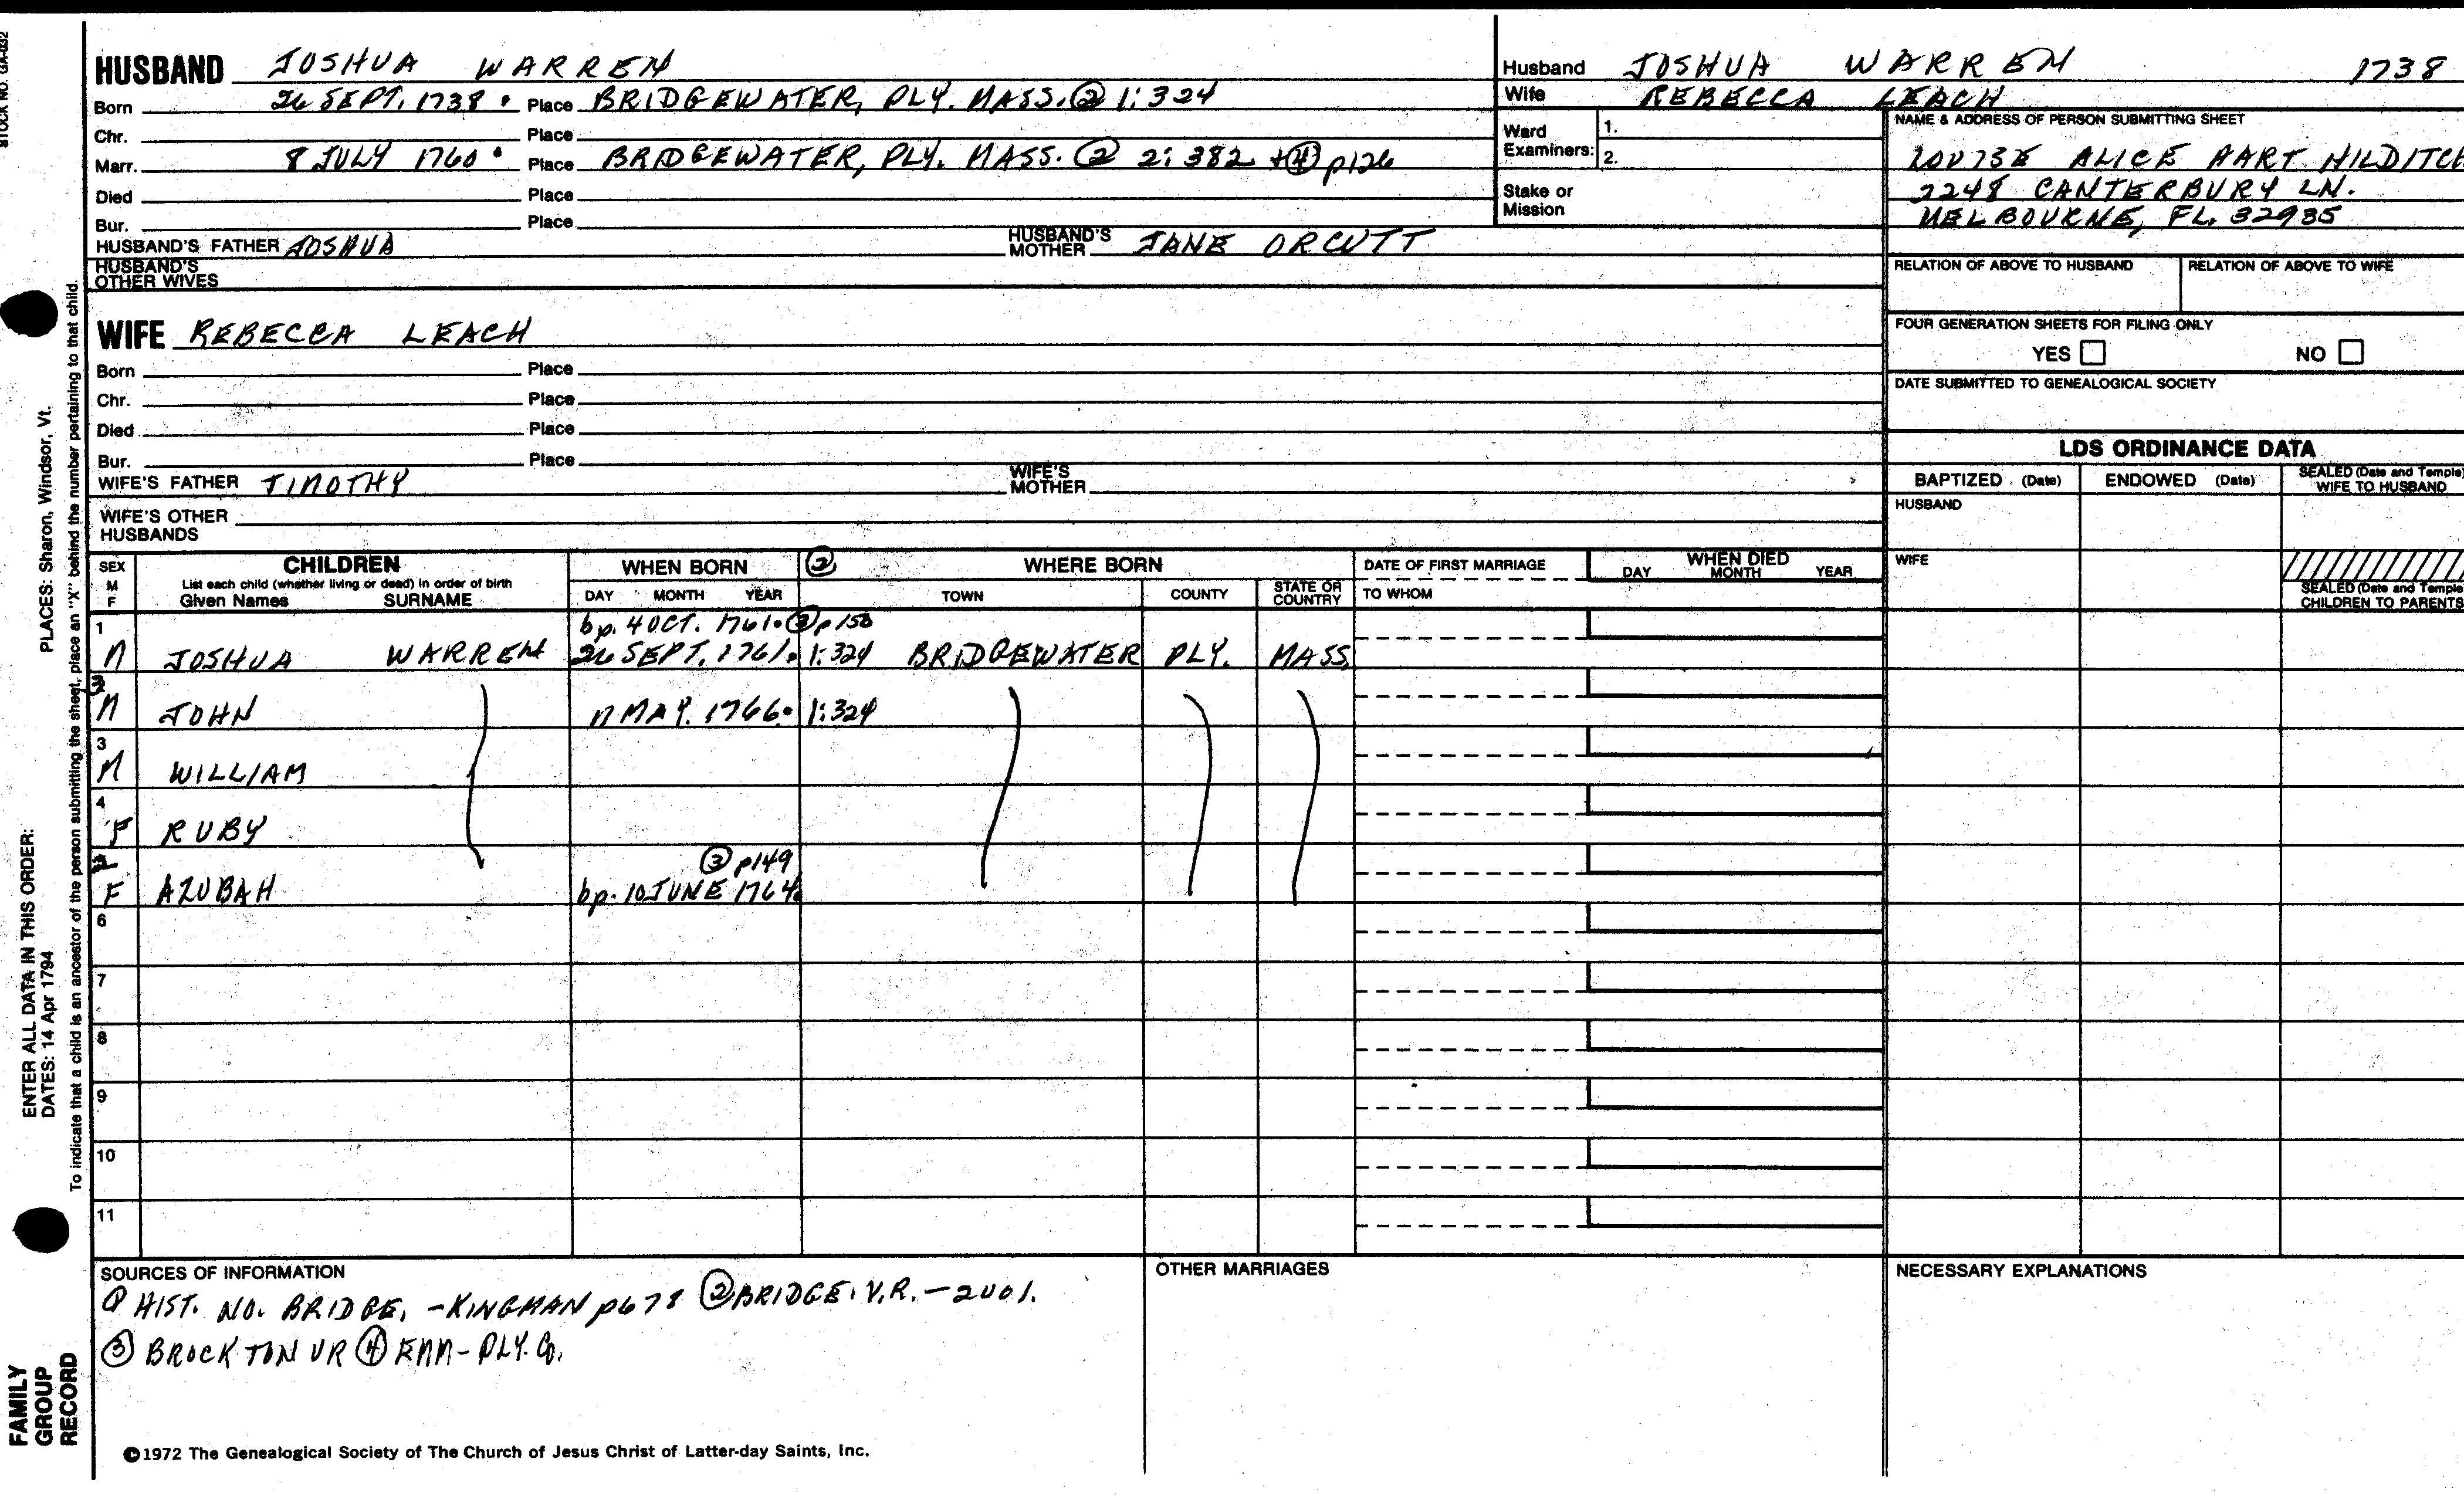 STOCK NO. GA-032
HUSBAND JOSHUA WARREN
Born 26 SEPT. 1738 Place BRIDGEWATER, PLY. MASS. ② 1:324
Chr. Place
Marr. 8 JULY 1760 Place BRIDGEWATER, PLY. MASS. ② 2:382 + ④ p126
Died Place
Bur. Place
HUSBAND'S FATHER JOSHUA HUSBAND'S MOTHER JANE ORCUTT
HUSBAND'S OTHER WIVES
Husband JOSHUA WARREN 1738
Wife REBECCA LEACH
Ward Examiners: 1.
2.
Stake or Mission
NAME & ADDRESS OF PERSON SUBMITTING SHEET
LOUISE ALICE HART HILDITCH
2248 CANTERBURY LN.
MELBOURNE, FL. 32935
RELATION OF ABOVE TO HUSBAND RELATION OF ABOVE TO WIFE
FOUR GENERATION SHEETS FOR FILING ONLY
YES NO
DATE SUBMITTED TO GENEALOGICAL SOCIETY
WIFE REBECCA LEACH
Born Place
Chr. Place
Died Place
Bur. Place
WIFE'S FATHER TIMOTHY WIFE'S MOTHER
WIFE'S OTHER HUSBANDS
LDS ORDINANCE DATA
BAPTIZED (Date) ENDOWED (Date) SEALED (Date and Temple) WIFE TO HUSBAND
HUSBAND
WIFE
SEALED (Date and Temple) CHILDREN TO PARENTS
SEX M F CHILDREN
List each child (whether living or dead) in order of birth
Given Names SURNAME
WHEN BORN
DAY MONTH YEAR
② WHERE BORN
TOWN COUNTY STATE OR COUNTRY
DATE OF FIRST MARRIAGE
TO WHOM
WHEN DIED
DAY MONTH YEAR
1 bp. 4 OCT. 1761 ③ p150
M JOSHUA WARREN 26 SEPT. 1761 1:324 BRIDGEWATER PLY. MASS
3
M JOHN MAY. 1766 1:324
3
M WILLIAM
4
F RUBY
2 ③ p149
F AZUBAH bp. 10 JUNE 1764
6
7
8
9
10
11
SOURCES OF INFORMATION
① HIST. NO. BRIDGE. - KINGMAN p678 ② BRIDGE. V.R. - 2 VOL.
③ BROCKTON VR ④ EMM - PLY. Co.
OTHER MARRIAGES
NECESSARY EXPLANATIONS
©1972 The Genealogical Society of The Church of Jesus Christ of Latter-day Saints, Inc.
FAMILY GROUP RECORD
ENTER ALL DATA IN THIS ORDER:
DATES: 14 Apr 1794 PLACES: Sharon, Windsor, Vt.
To indicate that a child is an ancestor of the person submitting the sheet, place an "X" behind the number pertaining to that child.